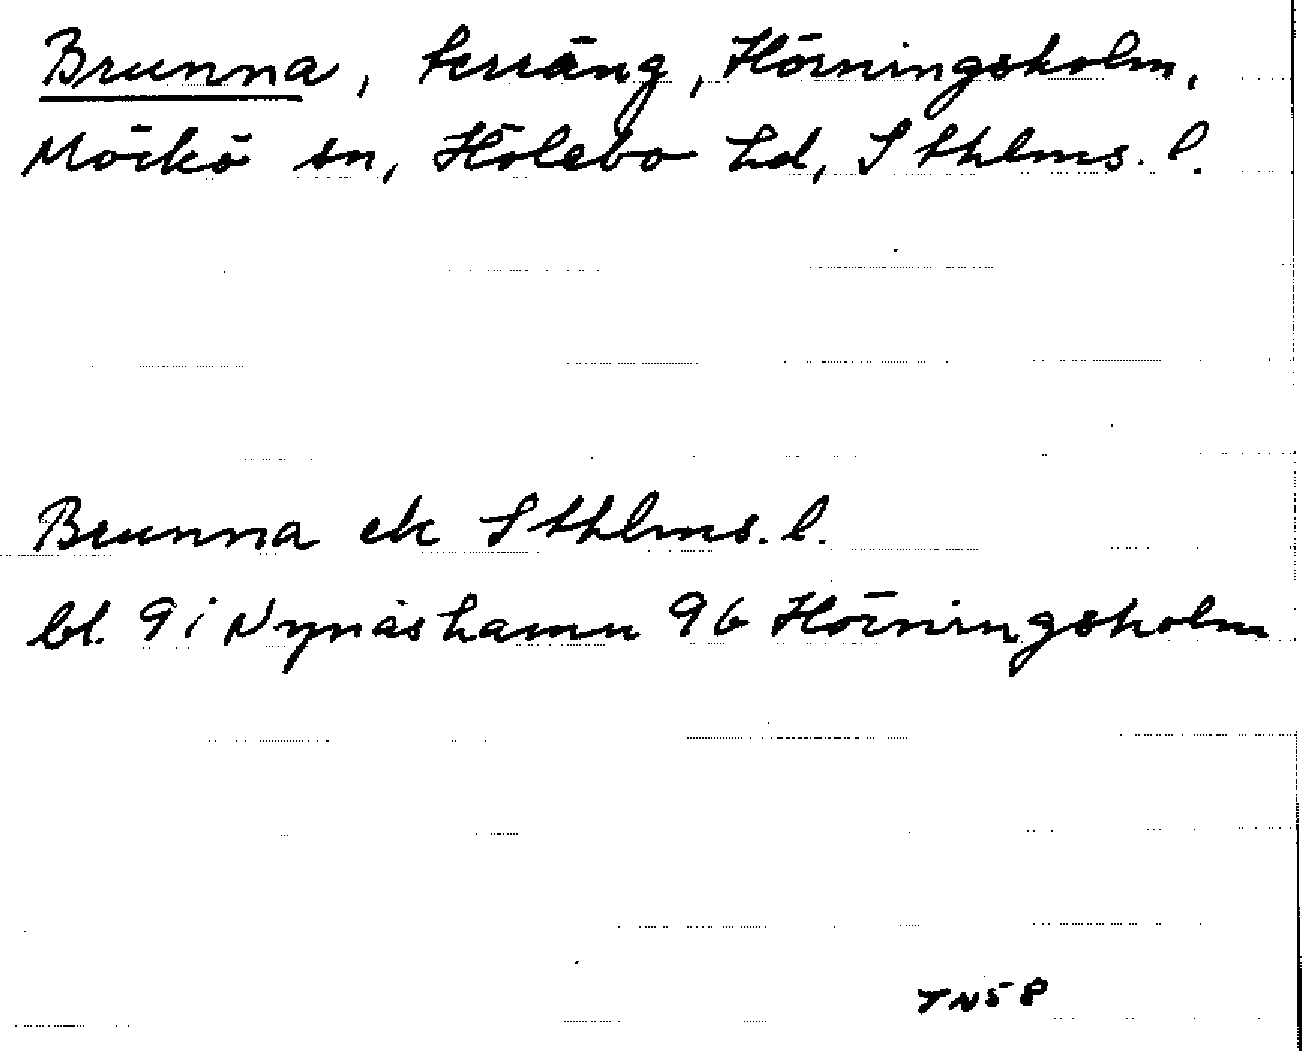 Brunna, terräng, Hörningsholm,
Mörkö sn, Hölebo hd, Sthlms. l.
Brunna ek Sthlms. l.
bl. 9 i Nynäshamn 96 Hörningsholm
TN58